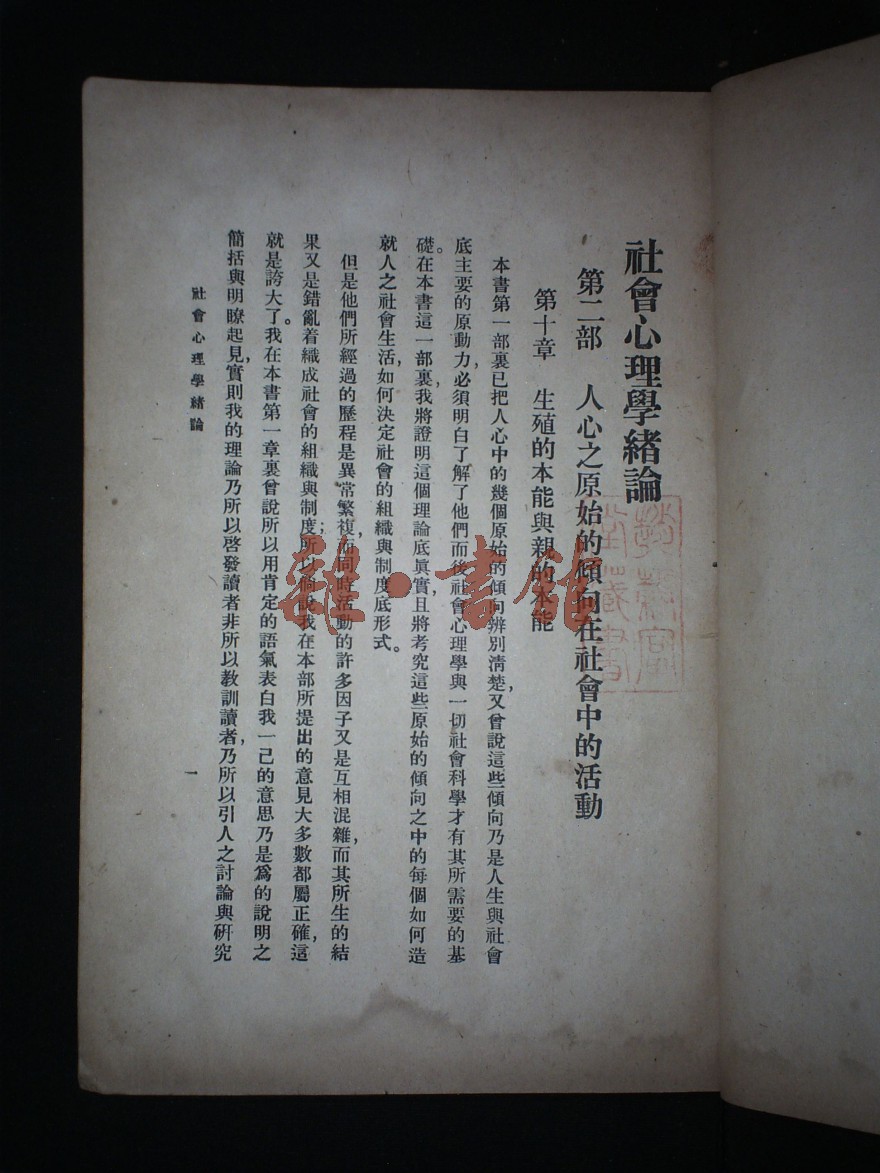 社會心理學緒論
第二部　人心之原始的傾向在社會中的活動
第十章　生殖的本能與親的本能
本書第一部裏已把人心中的幾個原始的傾向辨別淸楚，又曾說這些傾向乃是人生與社會
底主要的原動力，必須明白了解了他們而後社會心理學與一切社會科學才有其所需要的基
礎。在本書這一部裏，我將證明這個理論底眞實，且將考究這些原始的傾向之中的每個如何造
就人之社會生活，如何決定社會的組織與制度底形式。
但是他們所經過的歷程是異常繁複，而同時活動的許多因子又是互相混雜，而其所生的結
果又是錯亂着織成社會的組織與制度；所以倘說我在本部所提出的意見大多數都屬正確，這
就是誇大了。我在本書第一章裏曾說所以用肯定的語氣表白我一己的意思乃是爲的說明之
簡括與明瞭起見，實則我的理論乃所以啓發讀者非所以教訓讀者，乃所以引人之討論與硏究
社會心理學緒論
一
雜·書館
藏書